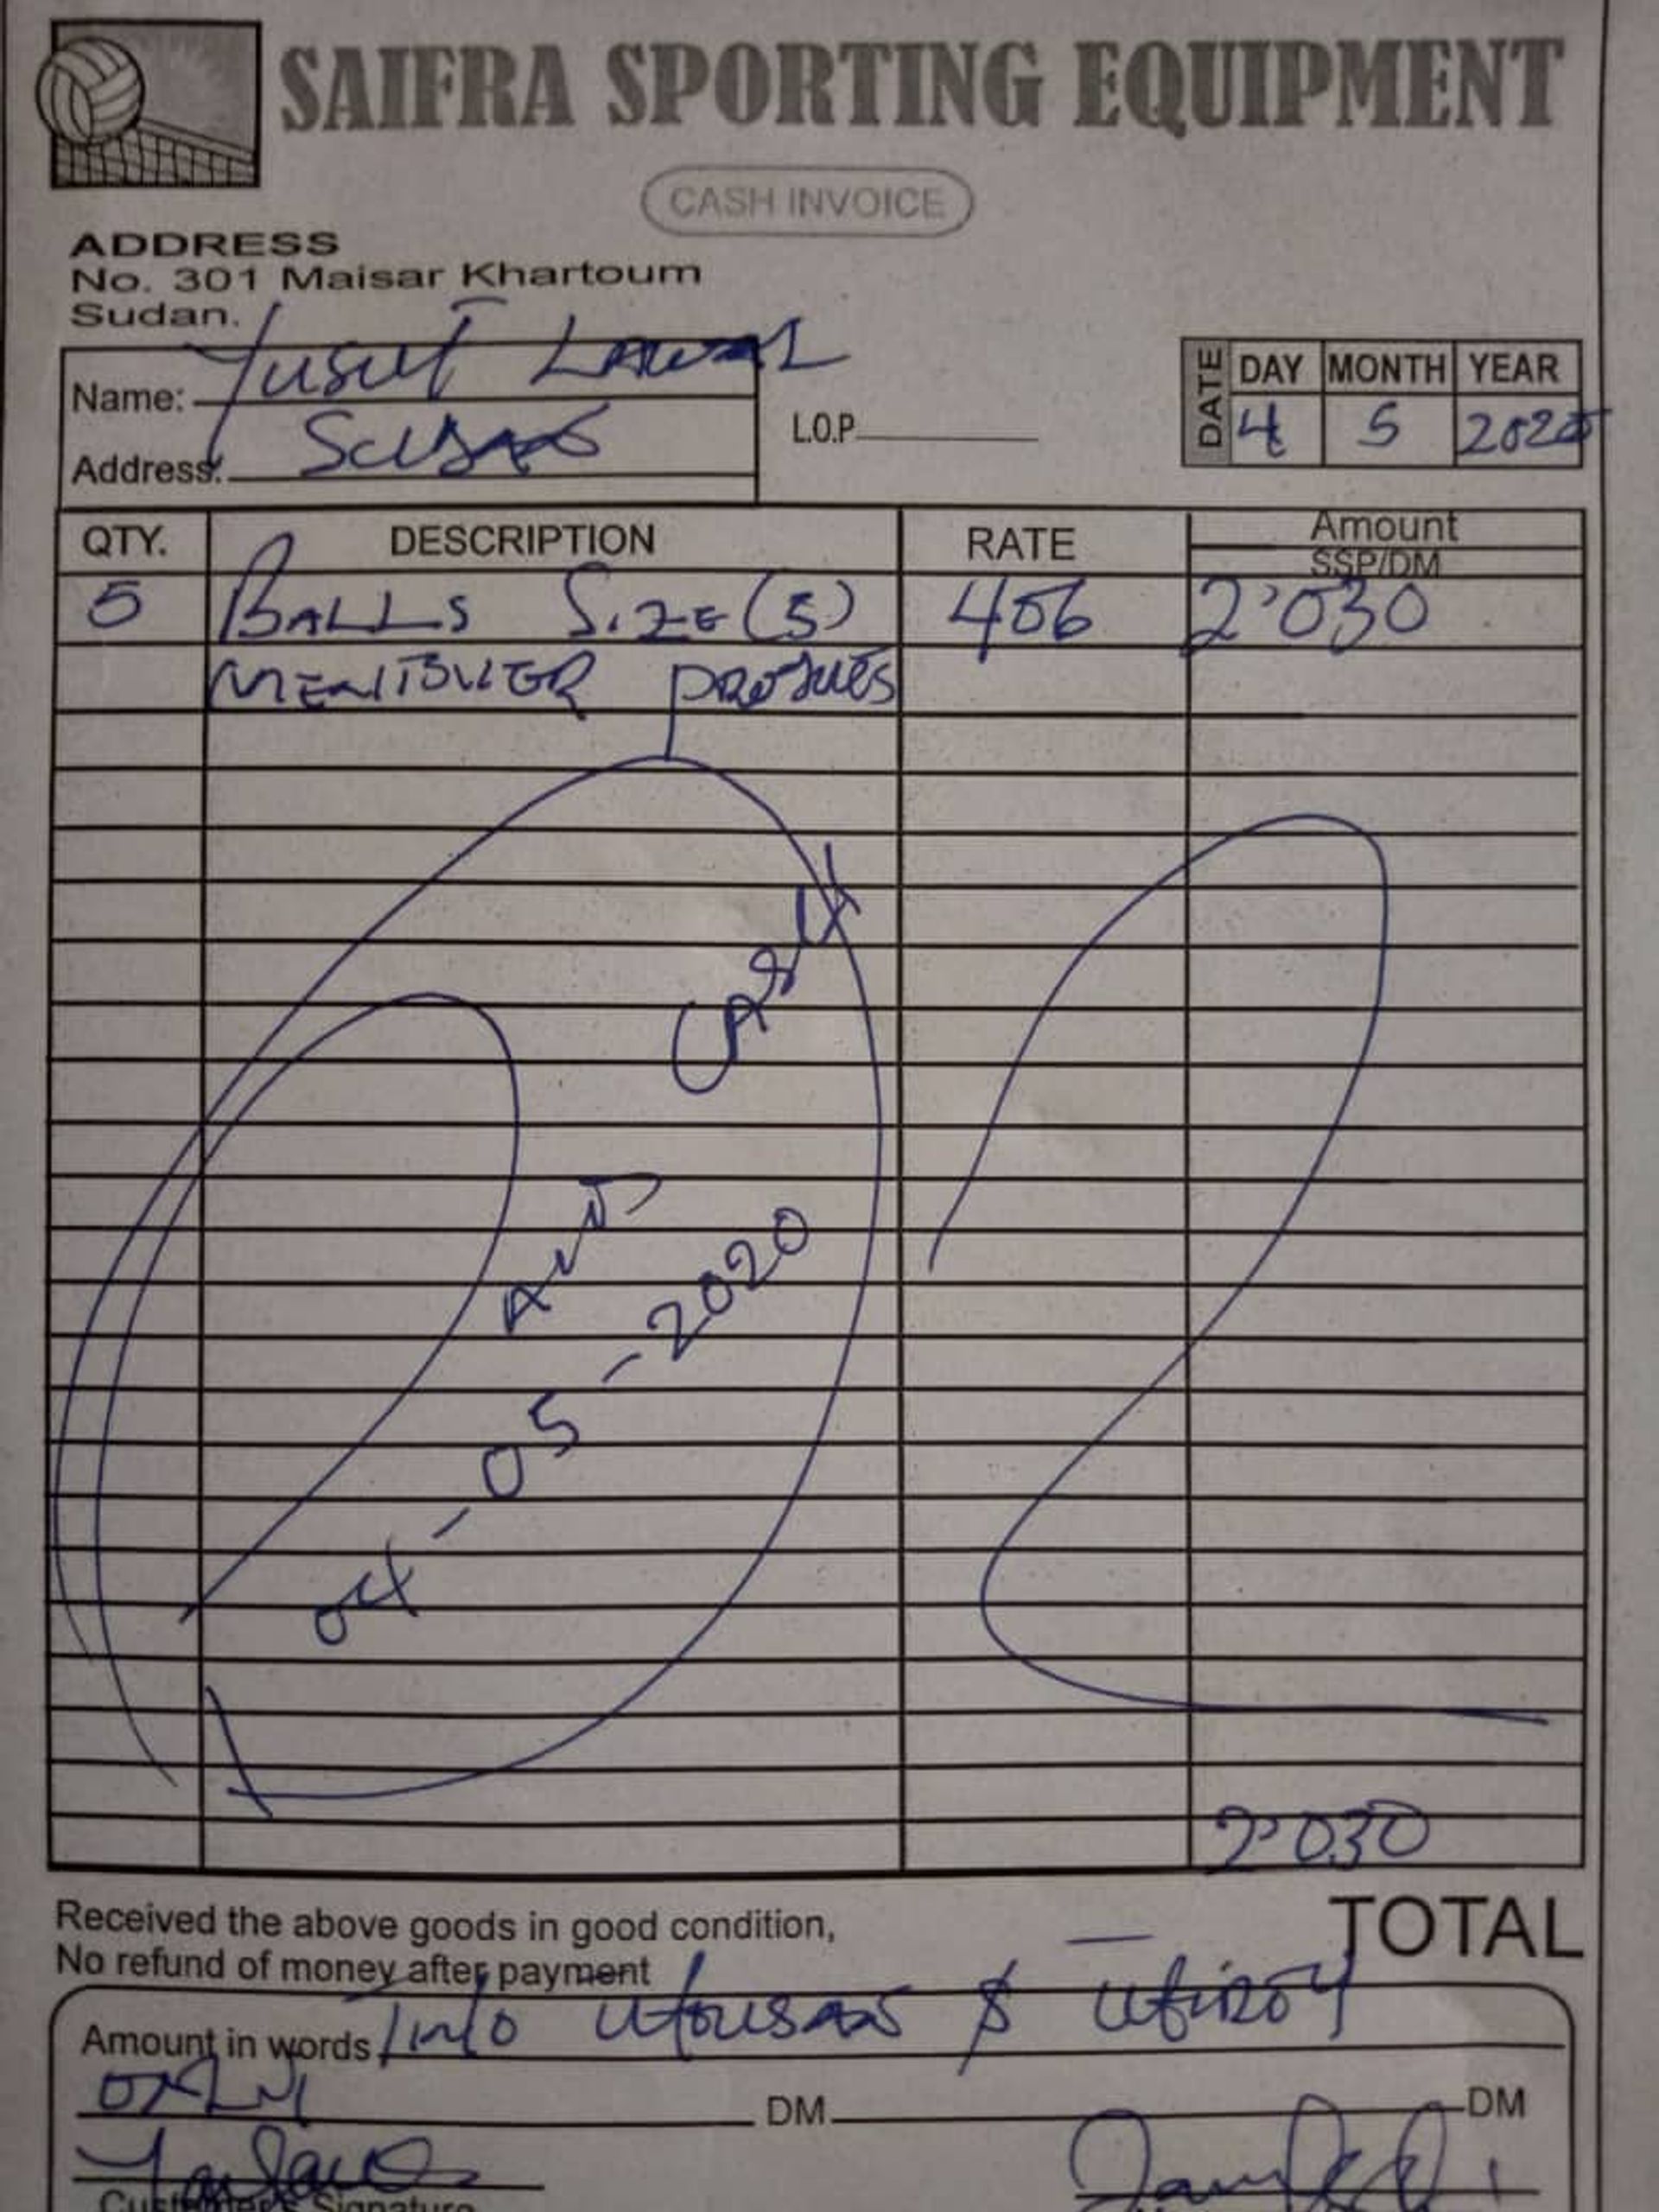 SAIFRA SPORTING EQUIPMENT
CASH INVOICE
ADDRESS
No. 301 Maisar Khartoum
Sudan.
Name: Yusuf Lawal
Address: Sudan
L.O.P
DATE
DAY MONTH YEAR
4 5 2020
QTY. DESCRIPTION RATE Amount
SSP/DM
5 BALLS SIZE (5) 406 2'030
CASH
AND
04-05-2020
2'030
Received the above goods in good condition,
No refund of money after payment
TOTAL
Amount in words
ONLY
DM DM
Customer's Signature